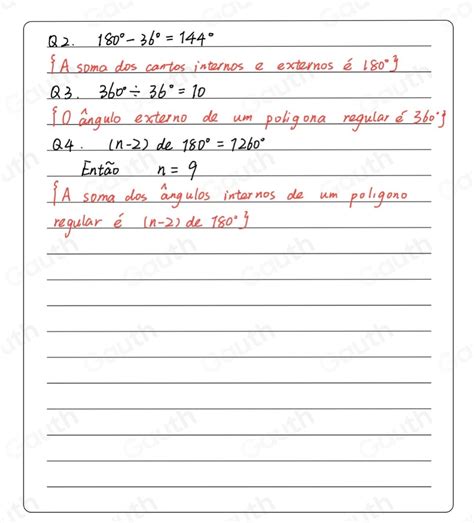 Q2. 180° - 36° = 144°
{A soma dos cantos internos e externos é 180°}
Q3. 360° ÷ 36° = 10
{O ângulo externo de um poligona regular é 360°}
Q4. (n-2) de 180° = 1260°
Então n = 9
{A soma dos ângulos internos de um poligono
regular é (n-2) de 180°}
Gauth